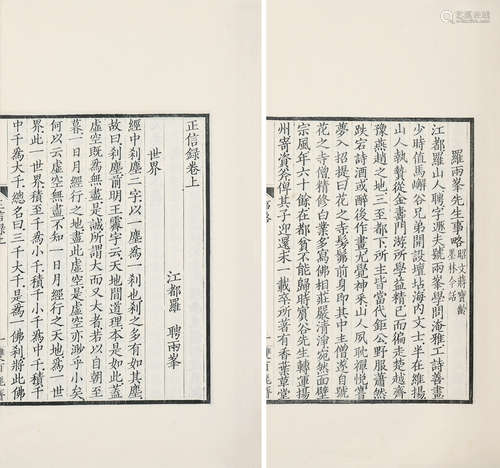 羅兩峯先生事略 昭文蔣寶齡
墨林今話
江都羅山人聘字遯夫號兩峯學問淹雅工詩善畫
少時值馬嶰谷兄弟開設壇坫海內文士半在維揚
山人執贄從金壽門游所學益精已而徧走楚越齊
豫燕趙之地三至都下所主皆當代鉅公野服蕭然
跌宕詩酒或醉後作畫尤覺神來山人夙耽禪悅嘗
夢入招提曰花之寺髣髴前身即其中主僧遂自號
花之寺僧精修白業多寫佛相莊嚴清淨宛然面壁
宗風年六十餘在都貧不能歸時賓谷先生轉運揚
州寄資斧俾其子迎還未一載卒所著有香葉草堂
正信錄卷上
江都羅 聘兩峯
世界
經中刹塵二字以一塵爲一刹也刹之多有如其塵
故曰刹塵前明王霽宇云天地間道理本是如此蓋
虛空既爲無盡是誠所謂大而又大者若以自朝至
暮一日月經行之天地盡此虛空是虛空亦渺乎小矣
何以云虛空無盡不知一日月經行之天地爲一世
界此一世界積至千爲小千積千小千爲中千積千
中千爲大千總名曰三千大千是爲一佛刹將此佛